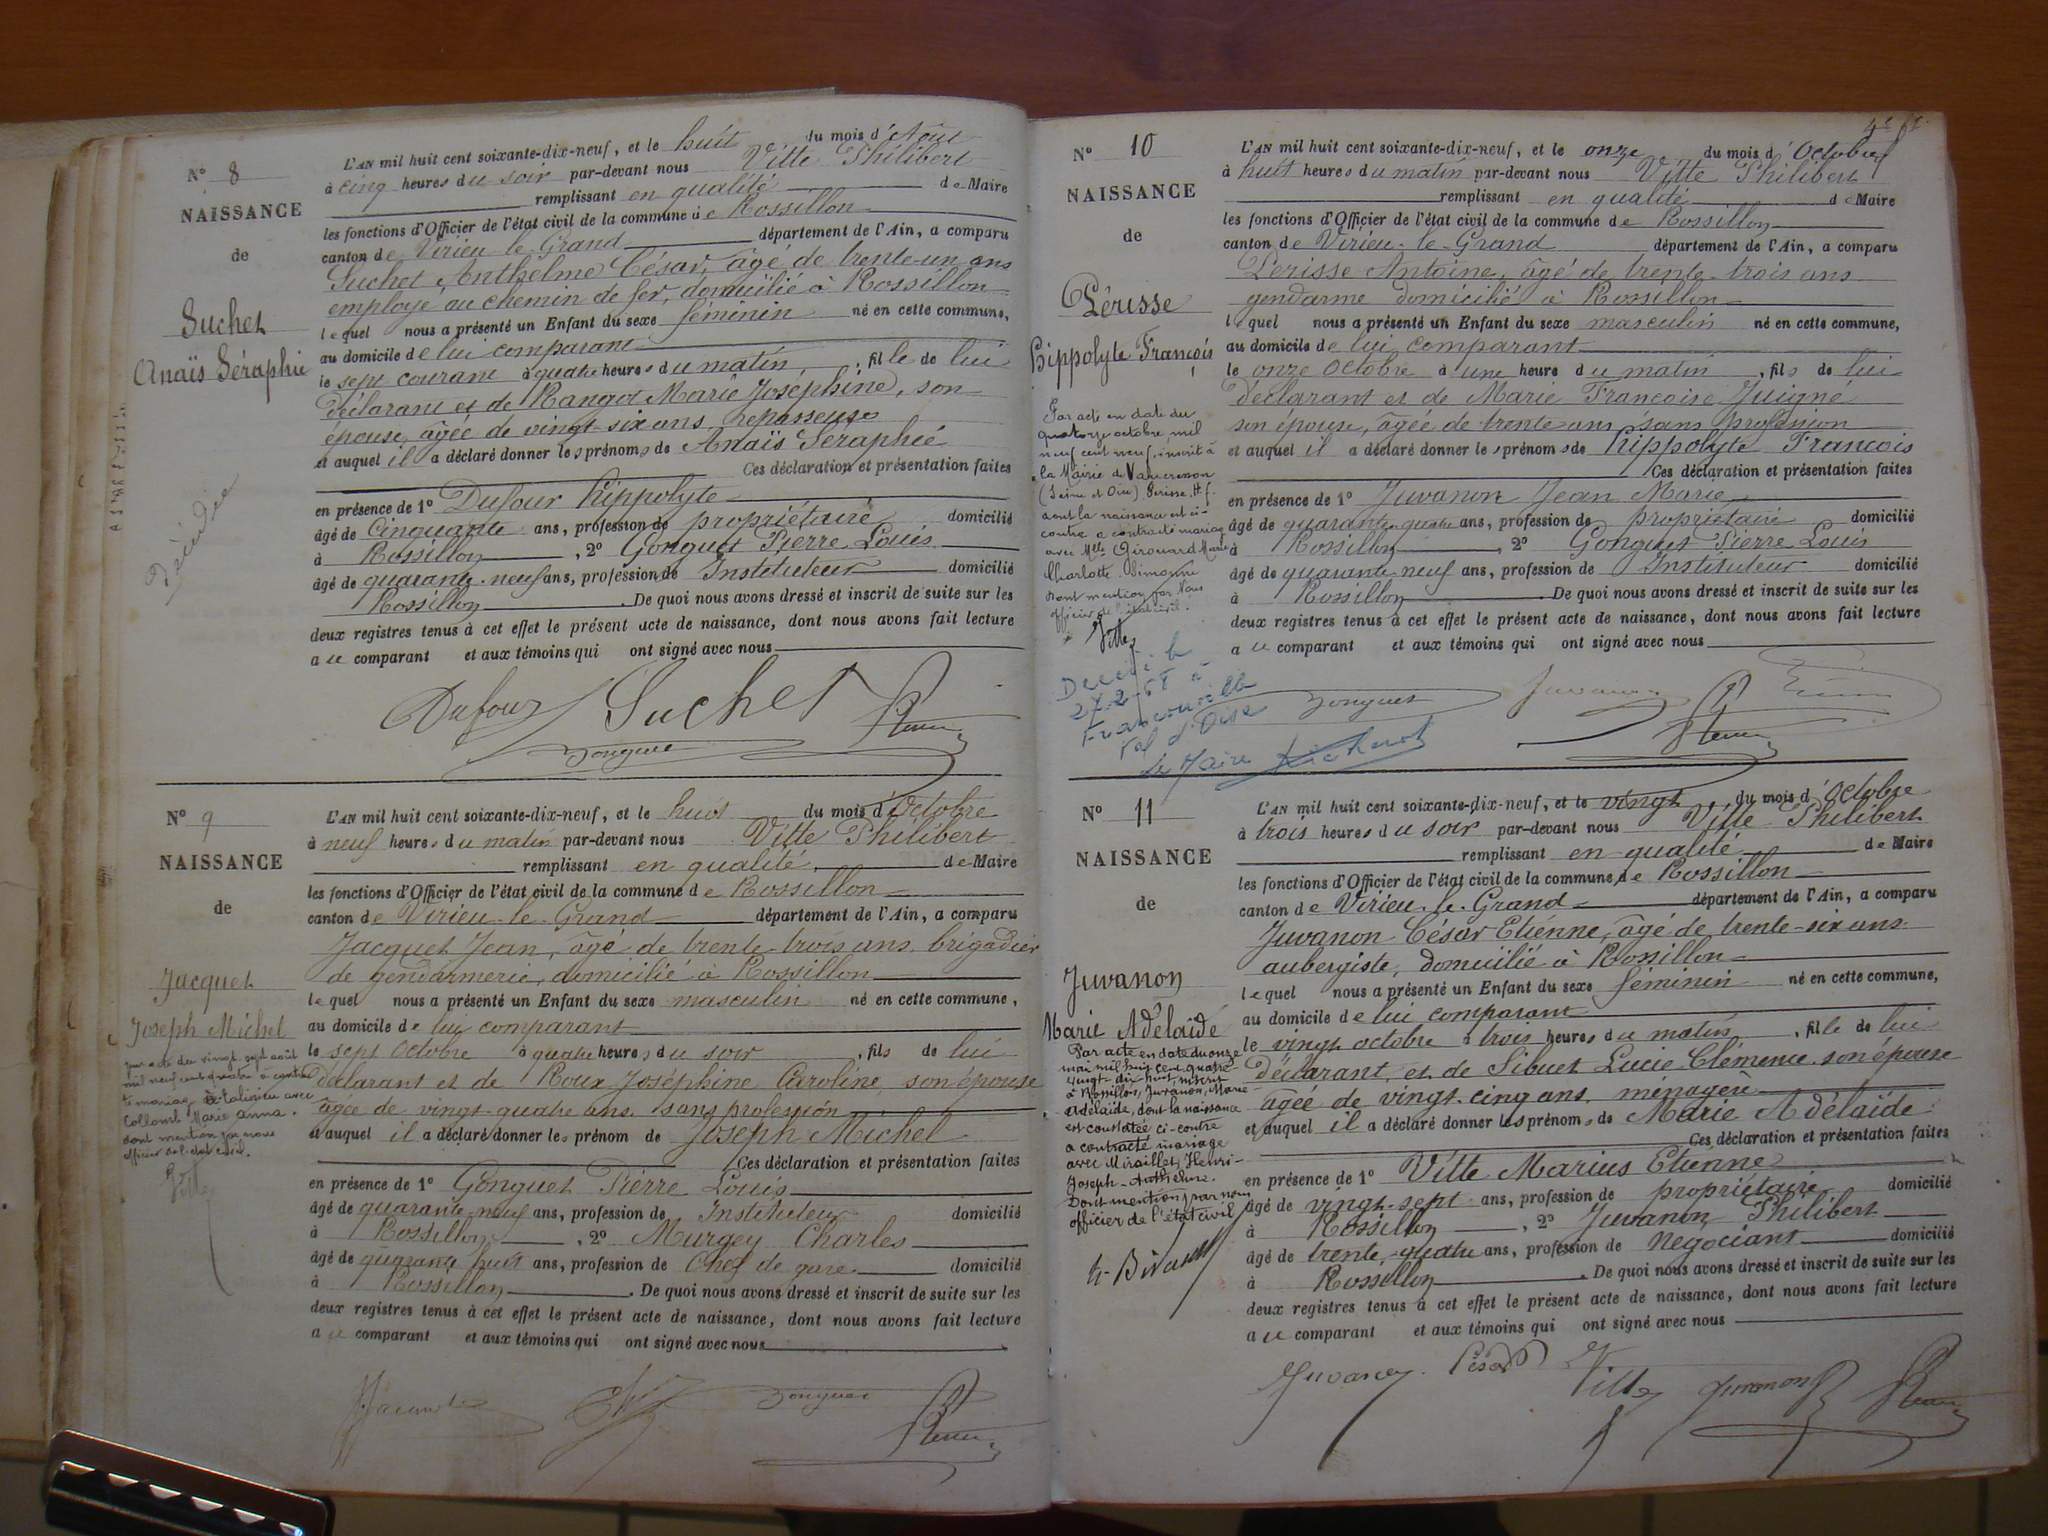 N° 8
NAISSANCE
de
Suchet
Anaïs Séraphie
Décédée
L'AN mil huit cent soixante-dix-neuf, et le huit du mois d'Août
à cinq heures du soir par-devant nous Vitte Philibert
remplissant en qualité de Maire
les fonctions d'Officier de l'état civil de la commune de Rossillon
canton de Virieu le Grand département de l'Ain, a comparu
Suchet Anthelme César, âgé de trente-un ans
employé au chemin de fer, domicilié à Rossillon
lequel nous a présenté un Enfant du sexe féminin né en cette commune,
au domicile de lui comparant
le sept courant à quatre heures du matin, fille de lui
déclarant et de Rangot Marie Joséphine, son
épouse, âgée de vingt-six ans, repasseuse
et auquel il a déclaré donner les prénoms de Anaïs Séraphie
Ces déclaration et présentation faites
en présence de 1° Dufour hippolyte
âgé de Cinquante ans, profession de propriétaire domicilié
à Rossillon, 2° Gonguet Pierre Louis
âgé de quarante-neuf ans, profession de Instituteur domicilié
Rossillon. De quoi nous avons dressé et inscrit de suite sur les
deux registres tenus à cet effet le présent acte de naissance, dont nous avons fait lecture
au comparant et aux témoins qui ont signé avec nous
Dufour Suchet
Gonguet
N° 9
NAISSANCE
de
Jacquet
Joseph Michel
par acte du vingt-sept août
mil neuf cent quatre à contrac
té mariage à Talissieu avec
Collomb Marie Anna.
dont mention par nous
officier de l'état civil.
Vitte
L'AN mil huit cent soixante-dix-neuf, et le huit du mois d'Octobre
à neuf heures du matin par-devant nous Vitte Philibert
remplissant en qualité de Maire
les fonctions d'Officier de l'état civil de la commune de Rossillon
canton de Virieu-le-Grand département de l'Ain, a comparu
Jacquet Jean, âgé de trente-trois ans, brigadier
de gendarmerie, domicilié à Rossillon
lequel nous a présenté un Enfant du sexe masculin né en cette commune,
au domicile de lui comparant
le sept Octobre à quatre heures du soir, fils de lui
déclarant et de Roux Joséphine Caroline, son épouse
âgée de vingt-quatre ans, sans profession
et auquel il a déclaré donner les prénom de Joseph Michel
Ces déclaration et présentation faites
en présence de 1° Gonguet Pierre Louis
âgé de quarante-neuf ans, profession de Instituteur domicilié
à Rossillon, 2° Murgey Charles
âgé de quarante huit ans, profession de Chef de gare domicilié
à Rossillon. De quoi nous avons dressé et inscrit de suite sur les
deux registres tenus à cet effet le présent acte de naissance, dont nous avons fait lecture
au comparant et aux témoins qui ont signé avec nous
Jacquet Gonguet
N° 10
NAISSANCE
de
Périsse
Hippolyte François
Par acte en date du
quatorze octobre, mil
neuf cent neuf, inscrit à
la Mairie de Vaucresson
(Seine et Oise) Périsse, H. f.
dont la naissance est ci-
contre a contracté mariage
avec Mlle Girouard Marie
Charlotte Simonne
dont mention par Nous
officier de l'état civil.
Vitte
Décédé le
27-2-68 à
Franconville
Val d'Oise
Le Maire
L'AN mil huit cent soixante-dix-neuf, et le onze du mois d'Octobre
à huit heures du matin par-devant nous Vitte Philibert
remplissant en qualité de Maire
les fonctions d'Officier de l'état civil de la commune de Rossillon
canton de Virieu-le-Grand département de l'Ain, a comparu
Périsse Antoine, âgé de trente-trois ans
gendarme domicilié à Rossillon
lequel nous a présenté un Enfant du sexe masculin né en cette commune,
au domicile de lui comparant
le onze Octobre à une heure du matin, fils de lui
déclarant et de Marie Françoise Juigné
son épouse, âgée de trente ans, sans profession
et auquel il a déclaré donner les prénoms de hippolyte François
Ces déclaration et présentation faites
en présence de 1° Juvanon Jean Marie
âgé de quarante-quatre ans, profession de propriétaire domicilié
à Rossillon, 2° Gonguet Pierre Louis
âgé de quarante neuf ans, profession de Instituteur domicilié
à Rossillon. De quoi nous avons dressé et inscrit de suite sur les
deux registres tenus à cet effet le présent acte de naissance, dont nous avons fait lecture
au comparant et aux témoins qui ont signé avec nous
Gonguet Juvanon
N° 11
NAISSANCE
de
Juvanon
Marie Adélaïde
Par acte en date du onze
mai mil huit cent quatre-
vingt-dix-huit, inscrit
à Rossillon, Juvanon, Marie
Adélaïde, dont la naissance
est constatée ci-contre
a contracté mariage
avec Miraillet, Henri-
Joseph-Anthelme.
Dont mention par nous
officier de l'état civil
L'AN mil huit cent soixante-dix-neuf, et le vingt du mois d'Octobre
à trois heures du soir par-devant nous Vitte Philibert
remplissant en qualité de Maire
les fonctions d'Officier de l'état civil de la commune de Rossillon
canton de Virieu-le-Grand département de l'Ain, a comparu
Juvanon César Etienne, âgé de trente-six ans
aubergiste, domicilié à Rossillon
lequel nous a présenté un Enfant du sexe féminin né en cette commune,
au domicile de lui comparant
le vingt octobre à trois heures du matin, fille de lui
déclarant, et de Sibuet Lucie Clémence, son épouse
âgée de vingt-cinq ans, ménagère
et auquel il a déclaré donner les prénoms de Marie Adélaïde
Ces déclaration et présentation faites
en présence de 1° Vitte Marius Etienne
âgé de vingt-sept ans, profession de propriétaire domicilié
à Rossillon, 2° Juvanon Philibert
âgé de trente-quatre ans, profession de négociant domicilié
à Rossillon. De quoi nous avons dressé et inscrit de suite sur les
deux registres tenus à cet effet le présent acte de naissance, dont nous avons fait lecture
au comparant et aux témoins qui ont signé avec nous
Juvanon César Vitte Juvanon